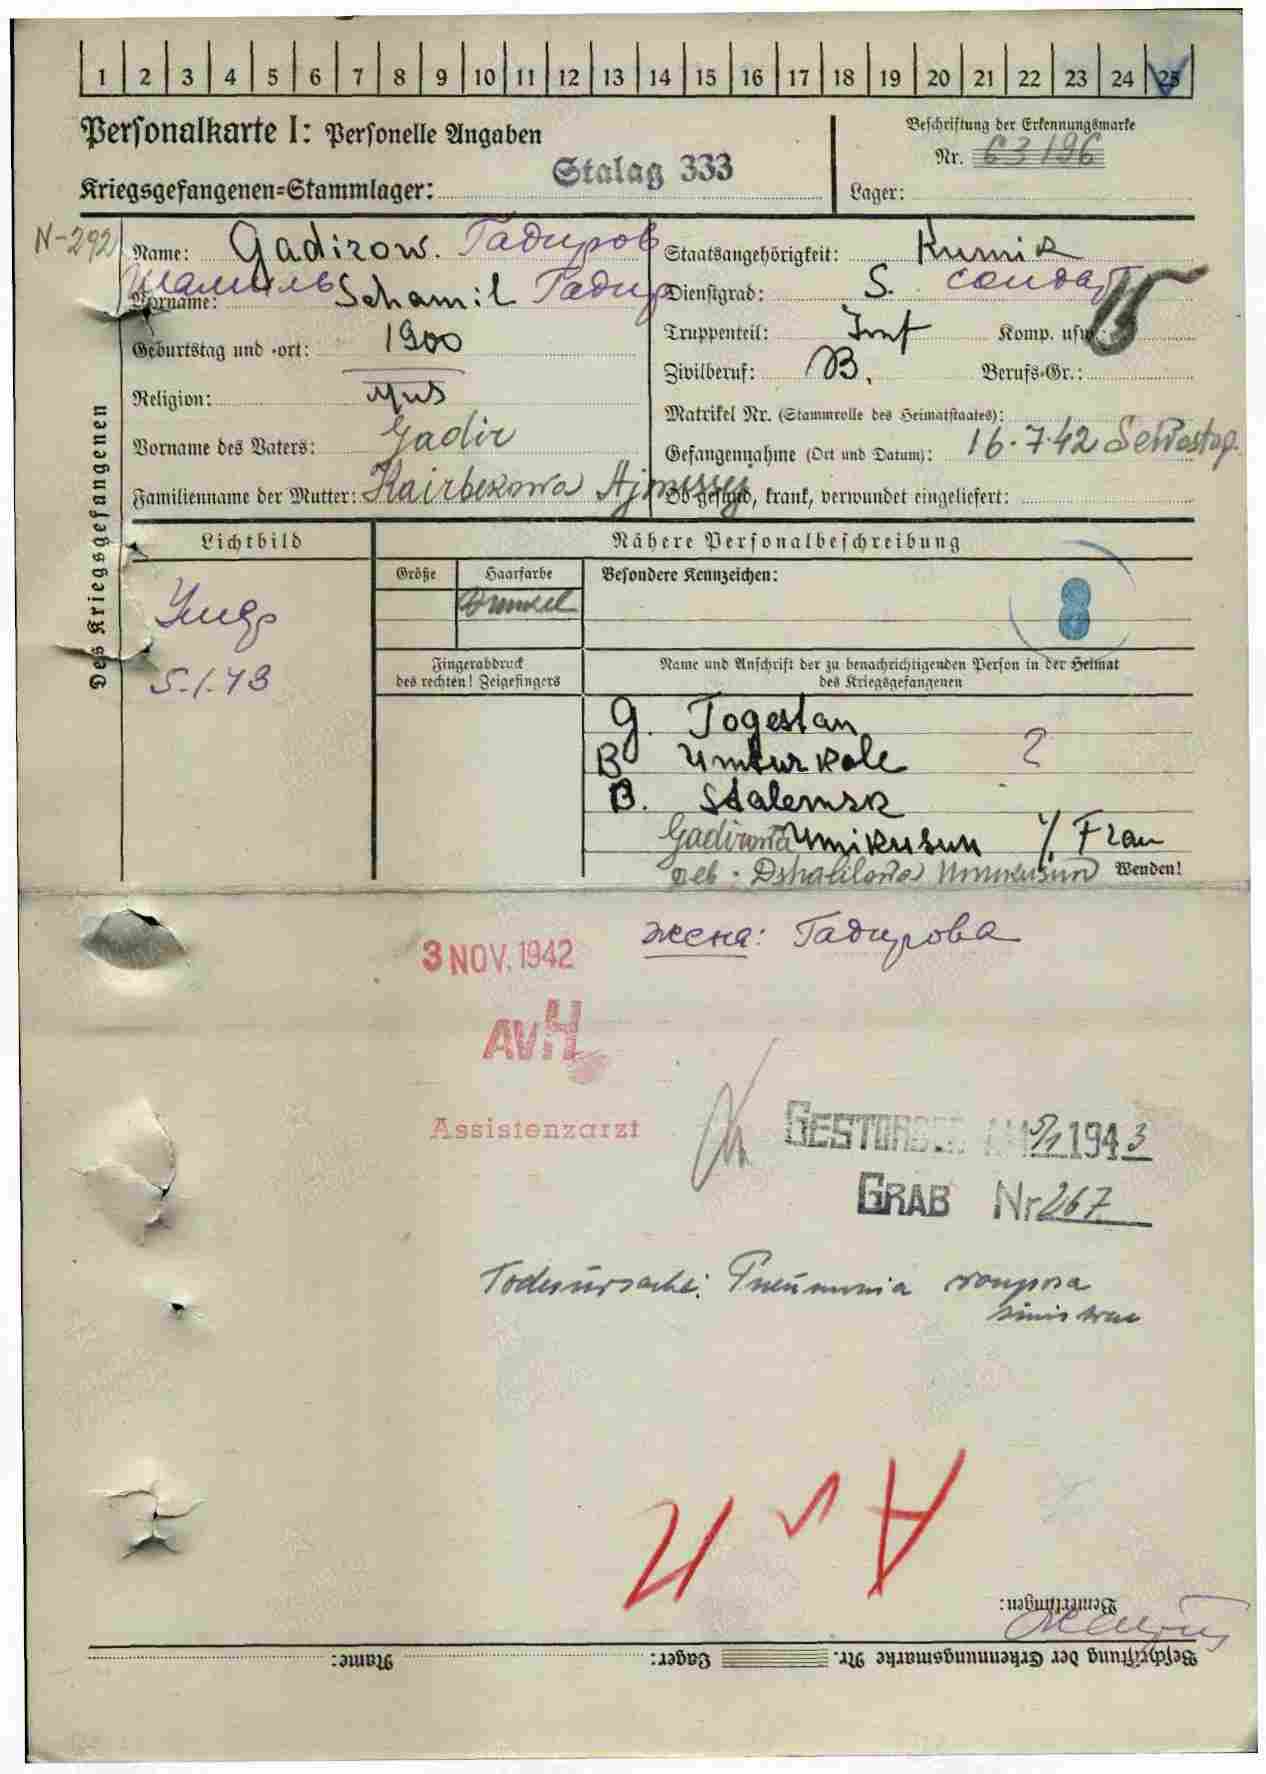 1 2 3 4 5 6 7 8 9 10 11 12 13 14 15 16 17 18 19 20 21 22 23 24 25
Personalkarte I: Personelle Angaben
Beschriftung der Erkennungsmarke
Nr. 63196
Kriegsgefangenen=Stammlager: Stalag 333
Lager:
N-292
Name: Gadirow. Гадиров
Staatsangehörigkeit: Kumik
Шамиль
Vorname: Schamil Гадир
Dienstgrad: S. солдат
Geburtstag und -ort: 1900
Truppenteil: Inf Komp. usw.:
Zivilberuf: B. Berufs-Gr.:
Religion: Mus
Matrikel Nr. (Stammrolle des Heimatstaates):
Vorname des Vaters: Gadir
Gefangennahme (Ort und Datum): 16.7.42 Sewastop.
Familienname der Mutter: Kairbekowa
Ob gesund, krank, verwundet eingeliefert:
Des Kriegsgefangenen
Lichtbild
Nähere Personalbeschreibung
Größe
Haarfarbe
Besondere Kennzeichen:
Dunkel
8
Умер
5.1.43
Fingerabdruck
des rechten! Zeigefingers
Name und Anschrift der zu benachrichtigenden Person in der Heimat
des Kriegsgefangenen
G. Togestan
B. Umturkale ?
B. Stalemsk
Gadirowa Umikusun Frau
geb. Dshalilowa Umukusun Wenden!
жена: Гадирова
3 NOV. 1942
AvH
Assistenzarzt
GESTORBEN AM 5/1 1943
GRAB Nr 267
Todesursache: Pneumonia crouposa
sinistrae
Bemerkungen:
Beschriftung der Erkennungsmarke Nr. Lager: Name: